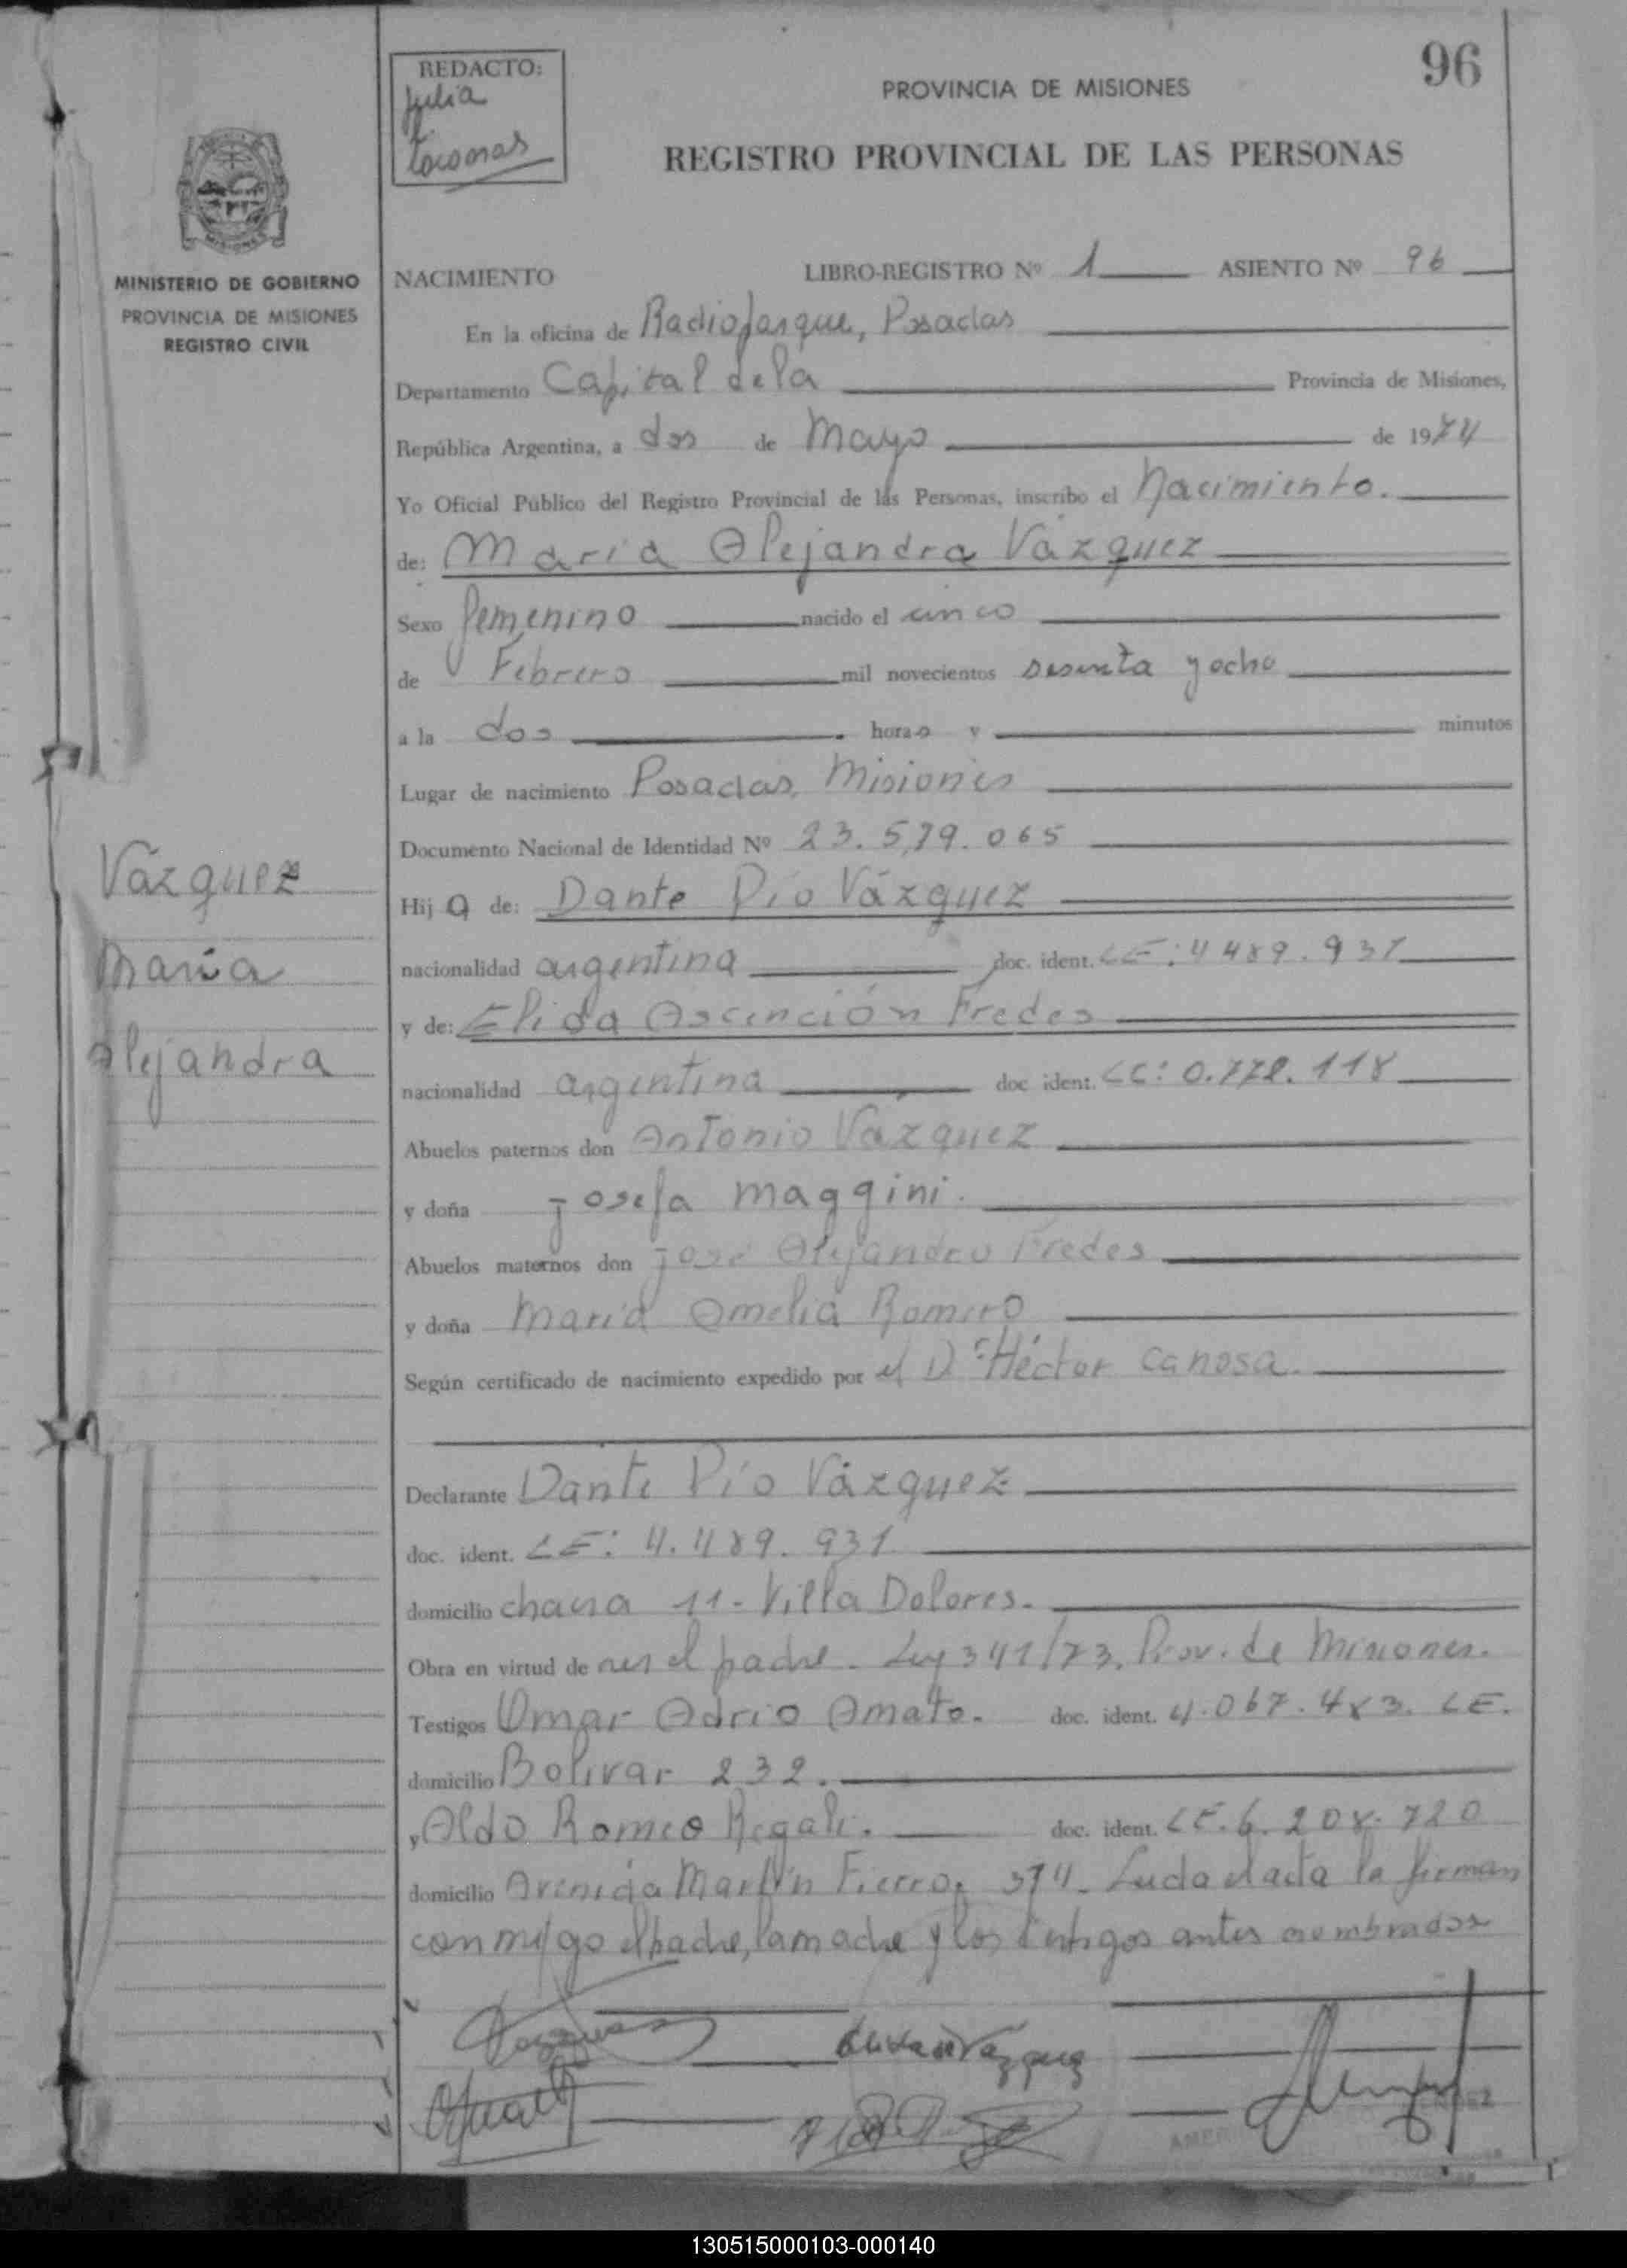 96
REDACTO:
Julia
PROVINCIA DE MISIONES
REGISTRO PROVINCIAL DE LAS PERSONAS
MINISTERIO DE GOBIERNO
PROVINCIA DE MISIONES
REGISTRO CIVIL
NACIMIENTO LIBRO-REGISTRO Nº 1 ASIENTO Nº 96
En la oficina de Radioparque, Posadas
Departamento Capital de la Provincia de Misiones,
República Argentina, a dos de Mayo de 1974
Yo Oficial Público del Registro Provincial de las Personas, inscribo el Nacimiento.
de: Maria Alejandra Vázquez
Sexo femenino nacido el cinco
de Febrero mil novecientos sesenta y ocho
a la dos horas y minutos
Lugar de nacimiento Posadas, Misiones
Documento Nacional de Identidad Nº 23.579.065
Vázquez
María
Alejandra
Hija de: Dante Pío Vázquez
nacionalidad argentina doc. ident. LE: 4489.931
y de: Elida Ascención Fredes
nacionalidad argentina doc ident. LC: 0.778.118
Abuelos paternos don Antonio Vázquez
y doña Josefa Maggini.
Abuelos maternos don José Alejandro Fredes
y doña María Amelia Romero
Según certificado de nacimiento expedido por el Dr. Héctor Canosa.
Declarante Dante Pío Vázquez
doc. ident. LE: 4.489.931
domicilio chacra 11 - Villa Dolores.
Obra en virtud de ser el padre - Ley 341/73. Prov. de Misiones.
Testigos Omar Adrio Amato. doc. ident. 4.067.483. LE.
domicilio Bolivar 232.
y Aldo Romeo Regali. doc. ident. LE. 6.208.720
domicilio Avenida Martín Fierro, 374 - Leida el acta la firman
conmigo el padre, la madre y los testigos antes nombrados
Elida de Vázquez
130515000103-000140